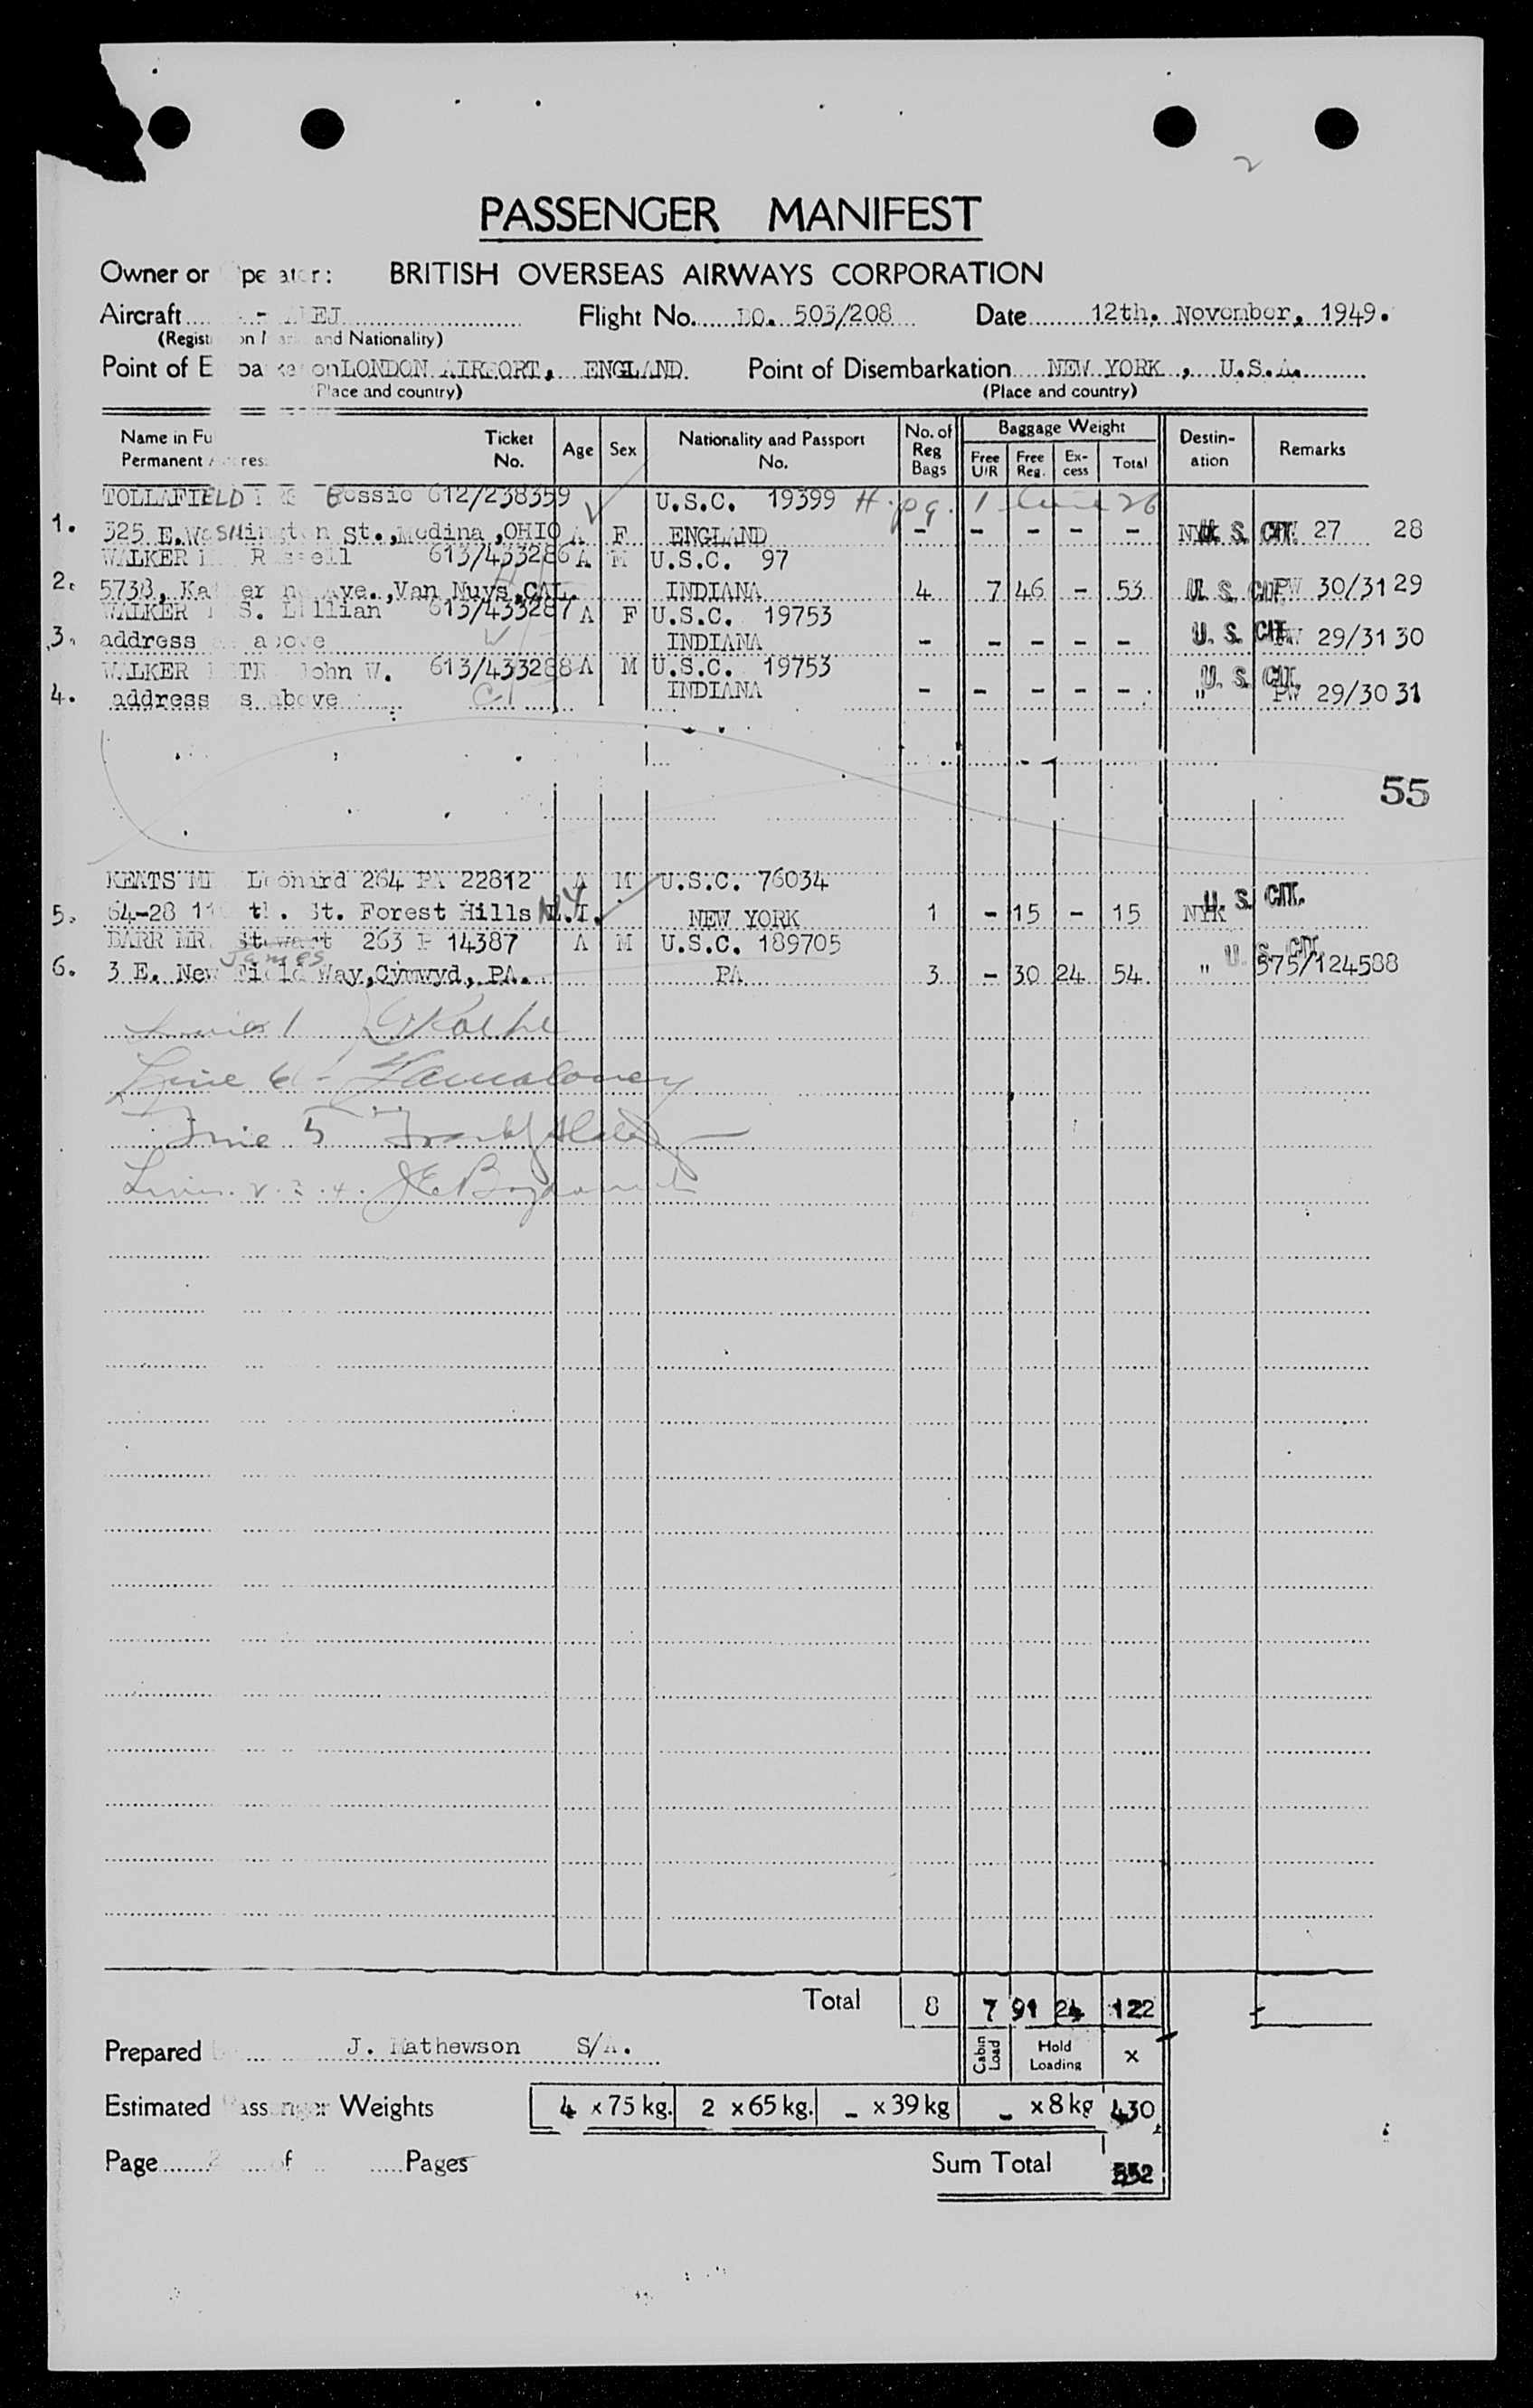 2
PASSENGER MANIFEST
Owner or Operator: BRITISH OVERSEAS AIRWAYS CORPORATION
Aircraft EJ Flight No. BO. 503/208 Date 12th. November, 1949.
(Registration Marks and Nationality)
Point of Embarkation LONDON AIRPORT, ENGLAND Point of Disembarkation NEW YORK, U.S.A.
(Place and country) (Place and country)
Name in Fu Ticket No. Age Sex Nationality and Passport No. No. of Reg Bags Baggage Weight Destin-ation Remarks
Permanent Address Free U/R Free Reg. Ex-cess Total
TOLLAFIELD MRS Bessie 612/238359 U.S.C. 19399 H. pg. 1 Line 26
1. 325 E.Washington St.,Medina,OHIO A F ENGLAND - - - - - NYK U. S. CIT. 27 28
WALKER Russell 613/433286 A M U.S.C. 97
2. 5738, Ave.,Van Nuys,CAL. INDIANA 4 7 46 - 53 U. S. CIT. PW 30/31 29
WALKER MRS. Lillian 613/433287 A F U.S.C. 19753
3. address as above INDIANA - - - - - U. S. CIT. PW 29/31 30
WALKER MSTR John W. 613/433288 A M U.S.C. 19753
4. address as above INDIANA - - - - - " U. S. CIT. PW 29/30 31
55
KEATS MR Leonard 264 PA 22812 A M U.S.C. 76034
5. 64-28 110 th. St. Forest Hills L.I. NEW YORK 1 - 15 - 15 NYK U. S. CIT.
BARR MR. Stewart 263 P 14387 A M U.S.C. 189705
James
6. 3 E. New Field Way,Cynwyd, PA. PA 3 - 30 24 54 " U. S. CIT. 575/124588
Line 6 -
Line 5
Lines 2.3.4.
Total 8 7 91 24 122
Prepared J. Mathewson S/A. Cabin Load Hold Loading x
Estimated Passenger Weights 4 x 75 kg. 2 x 65 kg. - x 39 kg - x 8 kg 430
Page 2 of Pages Sum Total 552